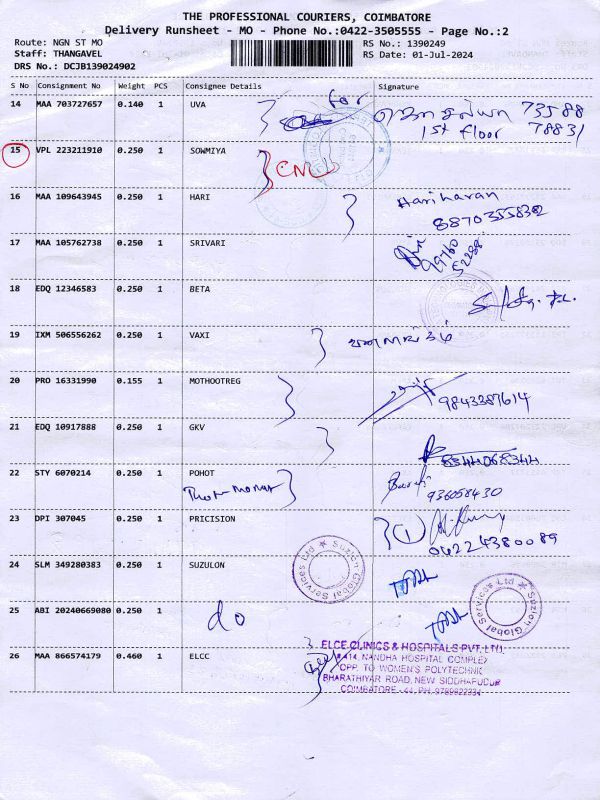 THE PROFESSIONAL COURIERS, COIMBATORE
Delivery Runsheet - MO - Phone No.:0422-3505555 - Page No.:2
Route: NGN ST MO RS No.: 1390249
Staff: THANGAVEL RS Date: 01-Jul-2024
DRS No.: DCJB139024902
S No Consignment No Weight PCS Consignee Details Signature
14 MAA 703727657 0.140 1 UVA for 73588
1st floor 78831
15 VPL 223211910 0.250 1 SOWMIYA
16 MAA 109643945 0.250 1 HARI Hariharan
17 MAA 105762738 0.250 1 SRIVARI 99760
52288
18 EDQ 12346583 0.250 1 BETA
19 IXM 506556262 0.250 1 VAXI
20 PRO 16331990 0.155 1 MOTHOOTREG
9843387614
21 EDQ 10917888 0.250 1 GKV
8344068344
22 STY 6070214 0.250 1 POHOT
936058430
23 DPI 307045 0.250 1 PRICISION (1)
04224380089
24 SLM 349280383 0.250 1 SUZULON
Suzlon Global Services Ltd
Suzlon Global Services Ltd
25 ABI 20240669080 0.250 1 do
26 MAA 866574179 0.460 1 ELCC
ELCE CLINICS & HOSPITALS PVT. LTD.
# 414, NANDHA HOSPITAL COMPLEX
OPP. TO WOMEN'S POLYTECHNIC
BHARATHIYAR ROAD, NEW SIDDHAPUDUR
COIMBATORE - 44, PH: 9789622334